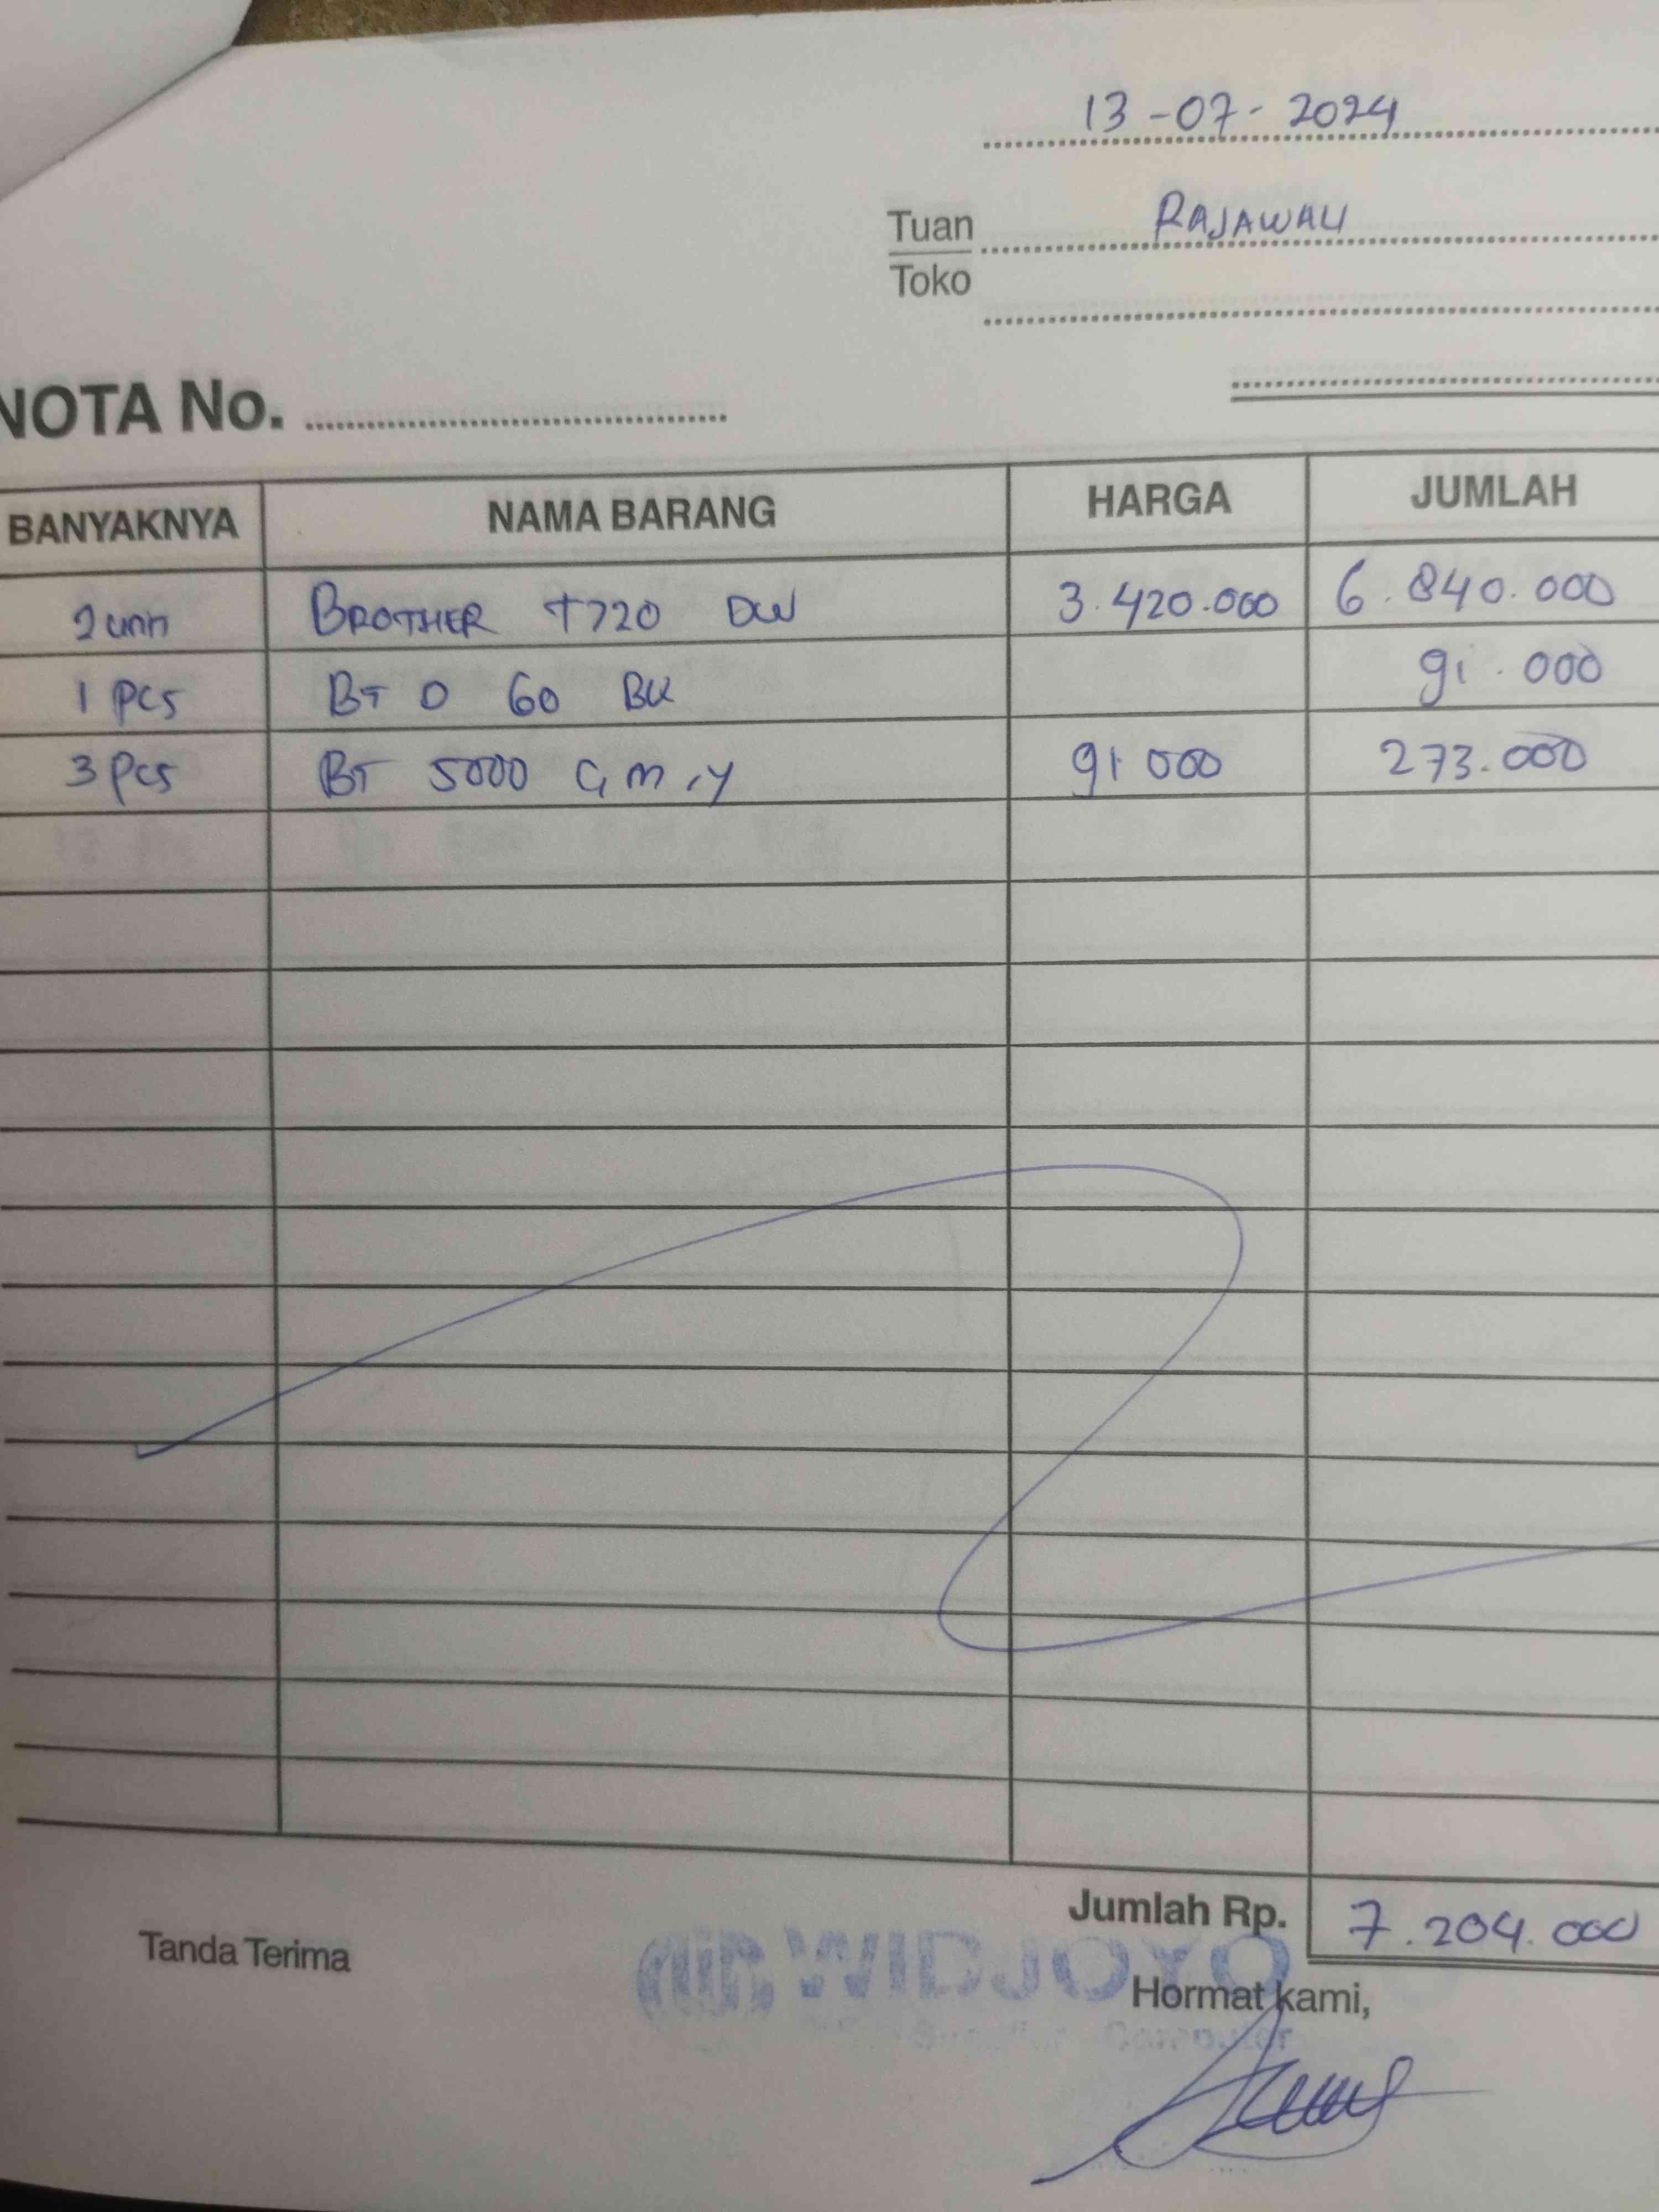 13-07-2024
Tuan RAJAWALI
Toko
NOTA No.
BANYAKNYA NAMA BARANG HARGA JUMLAH
2 unit BROTHER T720 DW 3.420.000 6.840.000
1 pcs BT D 60 BK 91.000
3 pcs BT 5000 C, M, Y 91.000 273.000
Jumlah Rp. 7.204.000
Tanda Terima
WIDJOYO
Hormat kami,
Computer